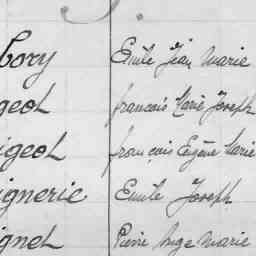 bory Emile Jean Marie
geol francois Marie Joseph
igeol françois Eugène Marie
ignerie Emile Joseph
ignel Pierre Ange Marie